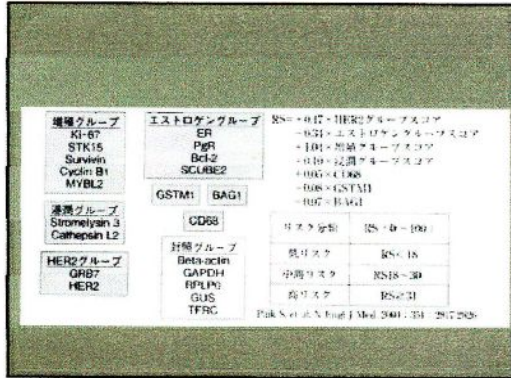 増殖グループ
Ki-67
STK15
Survivin
Cyclin B1
MYBL2
浸潤グループ
Stromelysin 3
Cathepsin L2
HER2グループ
GRB7
HER2
エストロゲングループ
ER
PgR
Bcl-2
SCUBE2
GSTM1 BAG1
CD68
対照グループ
Beta-actin
GAPDH
RPLP0
GUS
TFRC
RS= +0.47×HER2グループスコア
-0.34×エストロゲングループスコア
+1.04×増殖グループスコア
+0.10×浸潤グループスコア
+0.05×CD68
-0.08×GSTM1
-0.07×BAG1
リスク分類 RS (0~100)
低リスク RS<18
中間リスク RS18~30
高リスク RS≧31
Paik S, et al. N Engl J Med 2004 ; 351 : 2817-2826